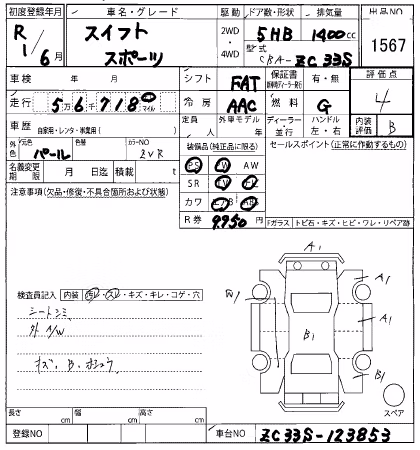 初度登録年月 車名・グレード 駆動 ドア数・形状 排気量 出品NO
R 1/6月 スイフト スポーツ 2WD・4WD 5HB 1400cc 1567
型式 CBA-ZC33S
車検 年 月 シフト FAT 保証書 有・無 評価点
走行 5万6千718 km マイル 冷房 AAC 燃料 G 4
車歴 自家用・レンタ・事業用( ) 定員 人 外車モデル 年 ディーラー・並行 ハンドル 左・右 内装評価 B
外色 元色 パール 色替 カラーNO ZVR 装備品(純正品に限る) セールスポイント(正常に作動するもの)
名義変更期限 月 日迄 積載 t PS PW AW
注意事項(欠品・修復・不具合箇所および状態) SR TV ナビ
カワ エアB ABS
R券 9,950円 Fガラス トビ石・キズ・ヒビ・ワレ・リペア跡
A1
検査員記入 内装 汚レ・スレ・キズ・キレ・コゲ・穴
シートシミ
外 A/W
キズ・B・ホシュウ
W1 B1 A1 A1 B1
スペア
長さ cm 幅 cm 高さ cm
登録NO 車台NO ZC33S-123853